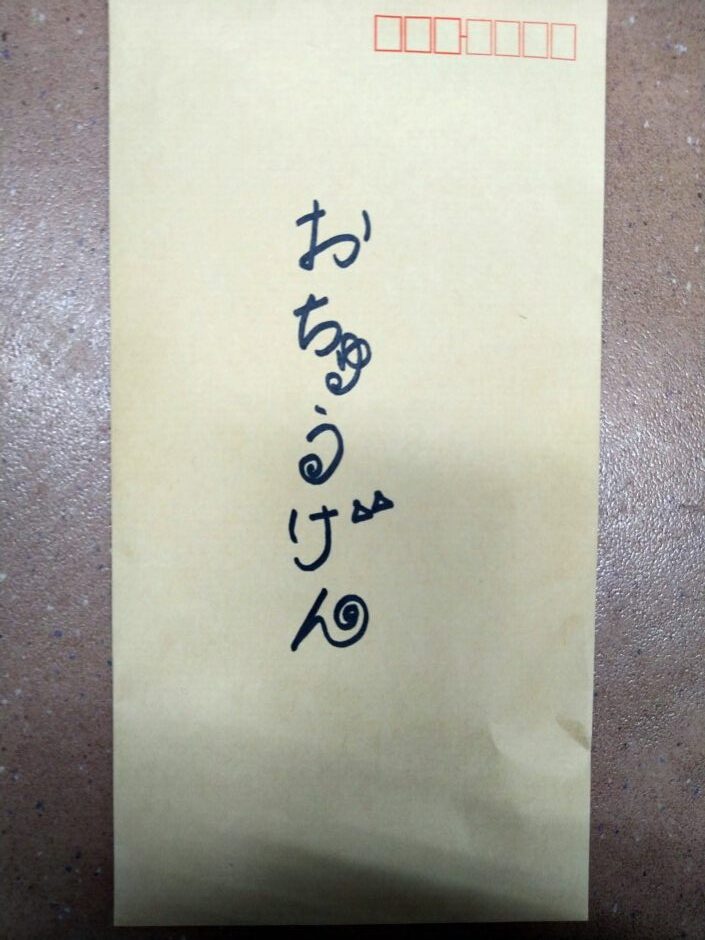 おちゅうげん